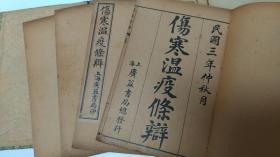 民國三年仲秋月
傷寒溫疫條辯
上海廣益書局總發行
傷寒溫疫條辯
上海廣益書局印